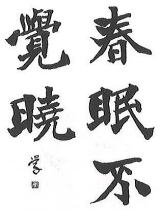 春眠不
覺曉
学